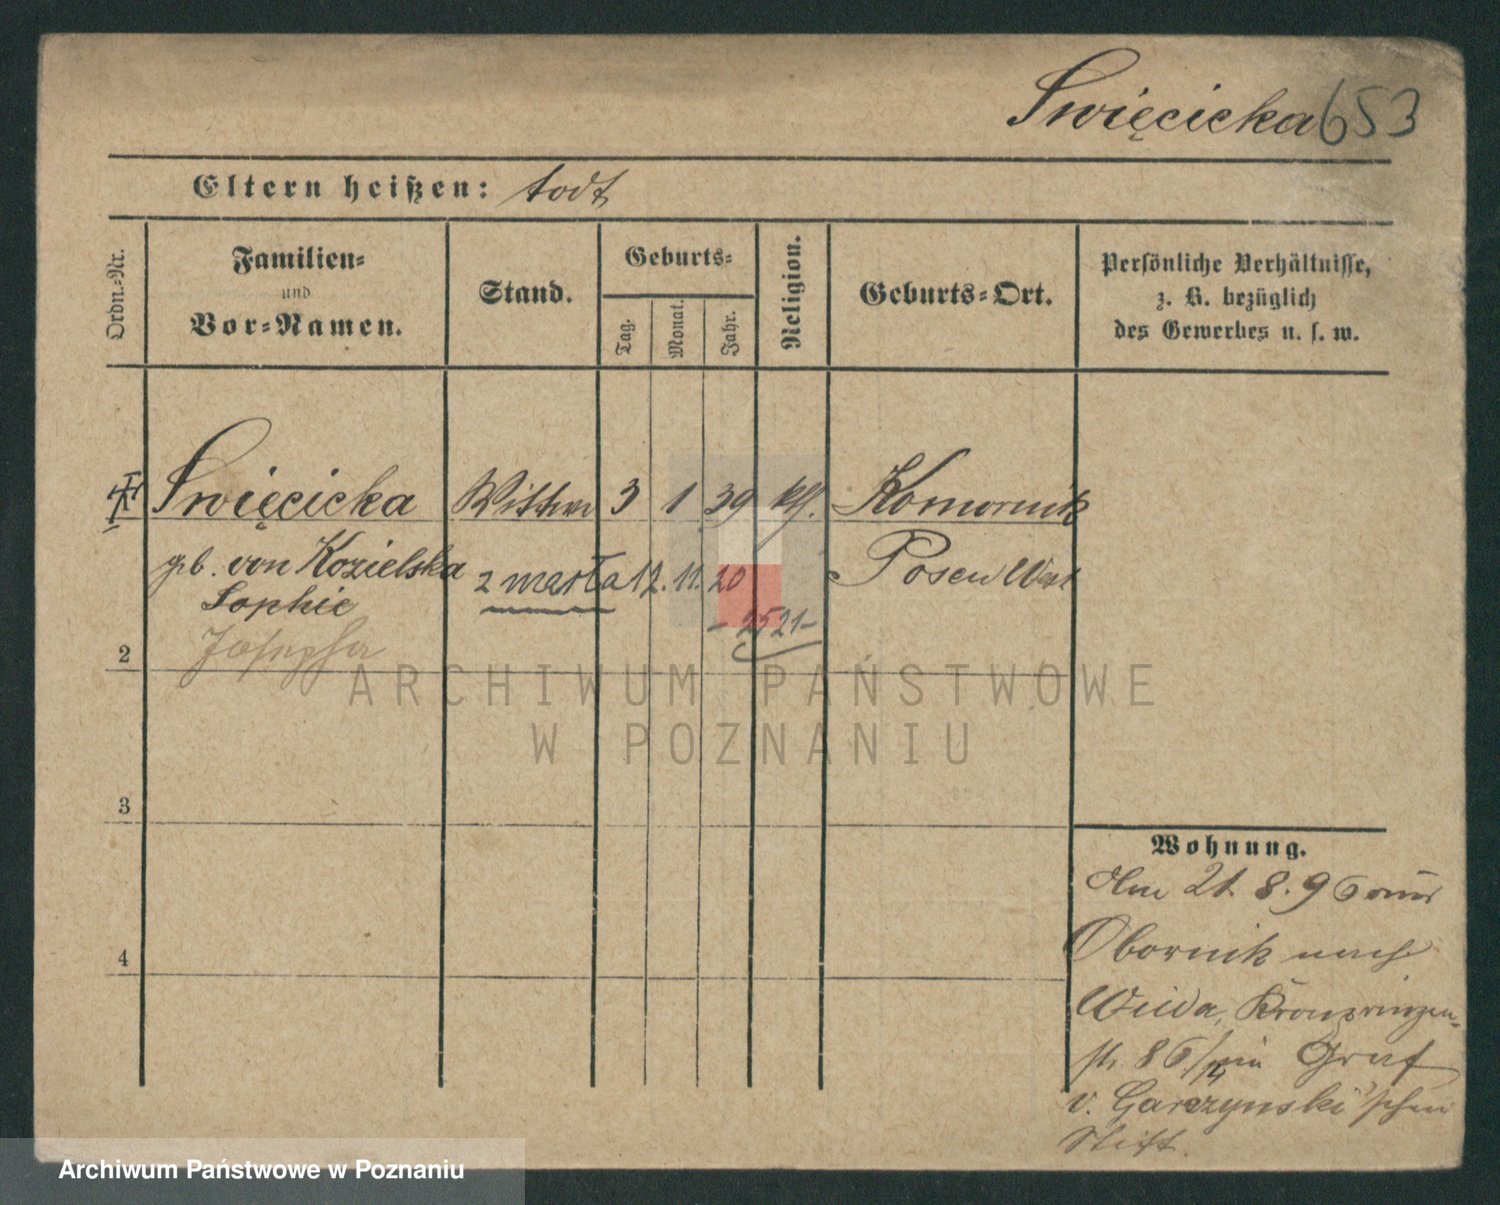 Święcicka 653
Eltern heißen: todt
Ordn.-Nr.
Familien-
und
Vor-Namen.
Stand.
Geburts-
Tag.
Monat.
Jahr.
Religion.
Geburts-Ort.
Persönliche Verhältnisse,
z. B. bezüglich
des Gewerbes u. s. w.
Święcicka Wittwe 3 1 39 kth. Komornik
gb. von Kozielska zmarła 12. 11. 20 Posen West
Sophie
- 2521 -
Josepha
2
3
4
Wohnung.
Am 21. 8. 96 aus
Obornik nach
Wilda, Kronprinzen-
str. 86/ im Graf
v. Garczynski'schen
Stift.
ARCHIWUM PAŃSTWOWE
W POZNANIU
Archiwum Państwowe w Poznaniu